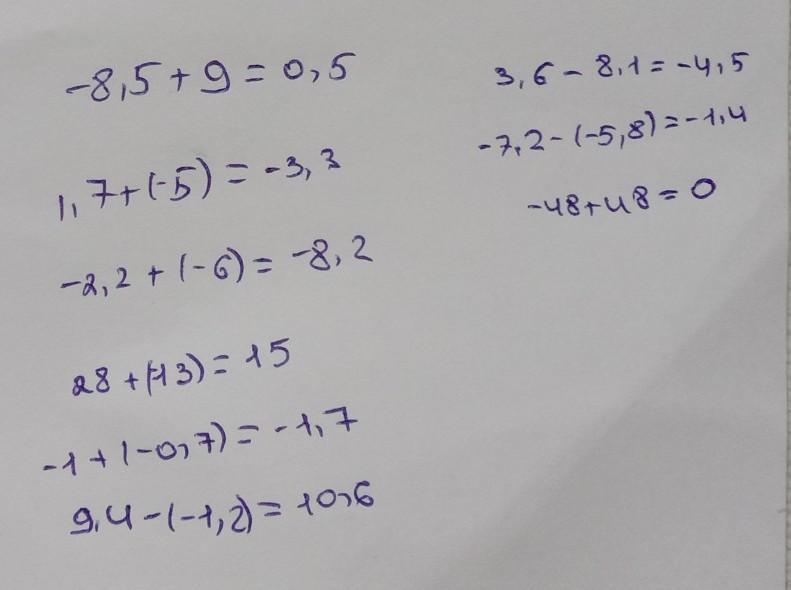 -8,5+9=0,5
1,7+(-5)=-3,3
-2,2+(-6)=-8,2
28+(-13)=15
-1+(-0,7)=-1,7
9,4-(-1,2)=10,6
3,6-8,1=-4,5
-7,2-(-5,8)=-1,4
-48+48=0